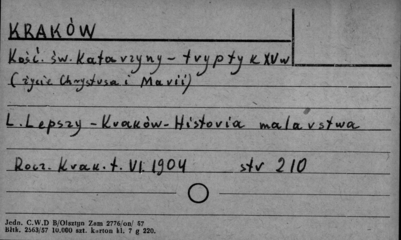 KRAKÓW
Kość. św. Katarzyny - tryptyk XV w
(życie Chrystusa i Marii)
L. Lepszy - Kraków - Historia malarstwa
Rocz. Krak. t. VI. 1904 str 210
Jedn. C.W.D B/Olsztyn Zam 2776/on/ 57
Bltk. 2563/57 10.000 szt. karton kl. 7 g 220.